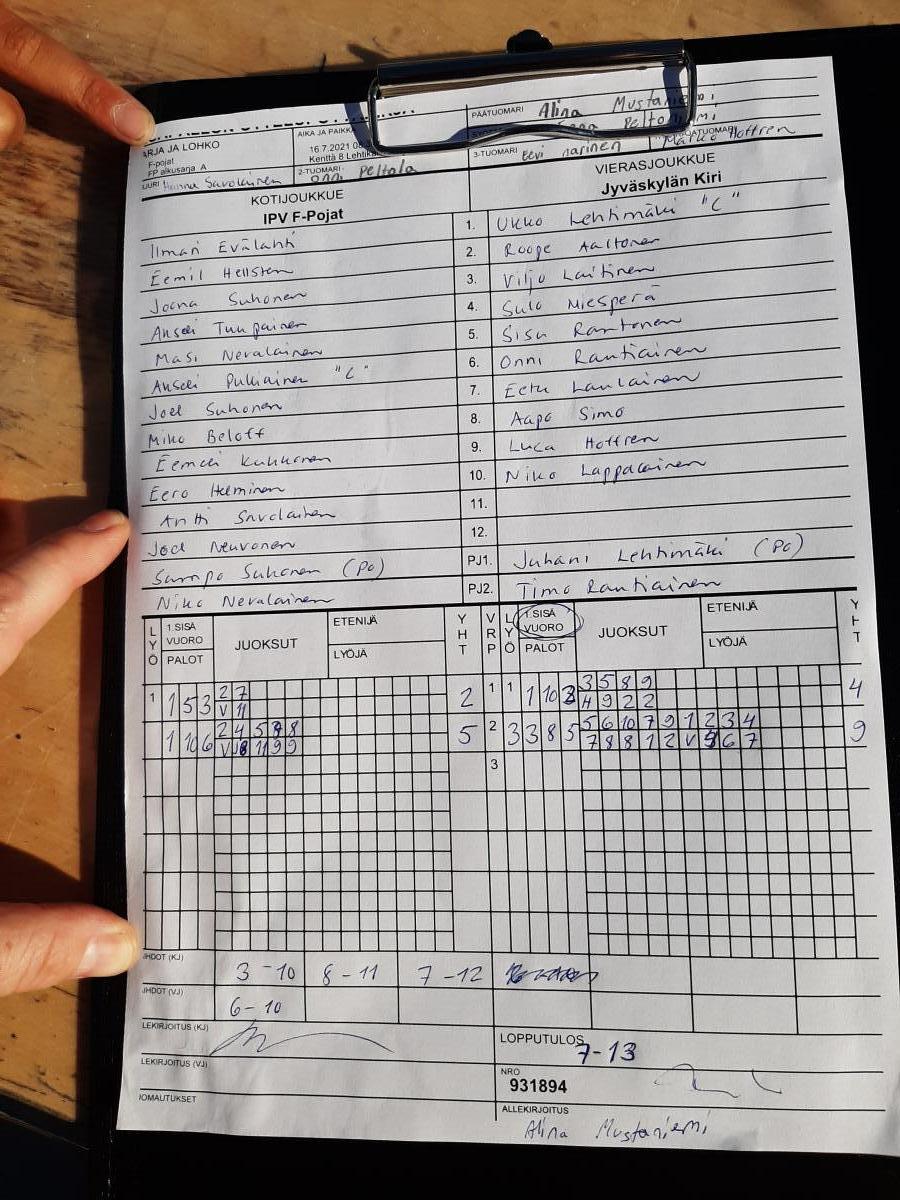 PÄÄTUOMARI Alina Mustaniemi
ARJA JA LOHKO
F-pojat
FP alkusarja A
AIKA JA PAIKKA
16.7.2021
Kenttä 8
Peltoniemi
2-TUOMARI Onni Peltola
3-TUOMARI Eevi narinen
Marko Hoffren
Savolainen
KOTIJOUKKUE
IPV F-Pojat
VIERASJOUKKUE
Jyväskylän Kiri
Ilmari Evälahti 1. Ukko Lehtimäki "C"
Eemil Hellsten 2. Roope Aaltonen
Joona Suhonen 3. Viljo Laitinen
Anseli Tuupainen 4. Sulo Miesperä
Masi Nevalainen 5. Sisu Rantonen
Anseli Pulliainen "C" 6. Onni Rautiainen
Joel Suhonen 7. Eetu Laulainen
Miko Beloff 8. Aapo Simo
Eemeli Kukkonen 9. Luca Hoffren
Eero Heiminen 10. Niko Lappalainen
Antti Savolainen 11.
Joel Neuvonen 12.
Sampo Suhonen (Po) PJ1. Juhani Lehtimäki (Po)
Niko Nevalainen PJ2. Timo Rautiainen
LYÖ 1.SISÄ VUORO PALOT JUOKSUT ETENIJÄ LYÖJÄ YHT VRP LYÖ 1.SISÄ VUORO PALOT JUOKSUT ETENIJÄ LYÖJÄ YHT
1 1 5 3 2 7 2 1 1 1 10 3 5 8 9 4
V 11 4 9 2 2
1 10 6 2 4 5 8 5 2 3 3 8 5 5 6 10 7 9 1 2 3 4 9
V 11 9 9 7 8 8 1 2 V 6 7
3
HDOT (KJ) 3-10 8-11 7-12
HDOT (VJ) 6-10
LEKIRJOITUS (KJ)
LOPPUTULOS 7-13
LEKIRJOITUS (VJ)
NRO
931894
OMAUTUKSET
ALLEKIRJOITUS
Alina Mustaniemi